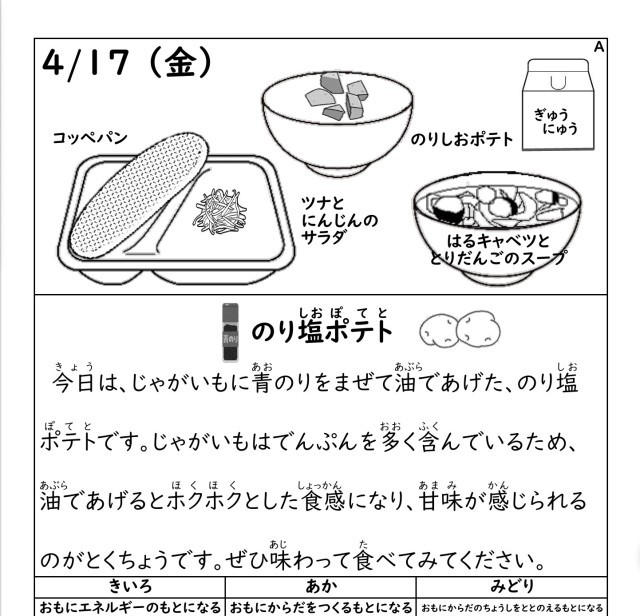 A
4/17（金）
コッペパン
のりしおポテト
ぎゅう
にゅう
ツナと
にんじんの
サラダ
はるキャベツと
とりだんごのスープ
青のり
しお ぽ て と
のり塩ポテト
きょう あお あぶら しお
今日は、じゃがいもに青のりをまぜて油であげた、のり塩
ぽ て と おお ふく
ポテトです。じゃがいもはでんぷんを多く含んでいるため、
あぶら ほ く ほ く しょっかん あま み かん
油であげるとホクホクとした食感になり、甘味が感じられる
あじ た
のがとくちょうです。ぜひ味わって食べてみてください。
きいろ あか みどり
おもにエネルギーのもとになる おもにからだをつくるもとになる おもにからだのちょうしをととのえるもとになる